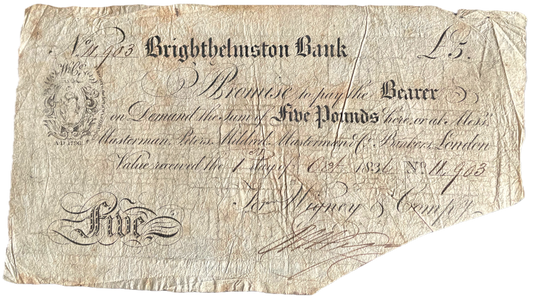 Brighthelmston Bank £5.
Promise to pay the Bearer
on Demand the Sum of Five Pounds here, or at Mess.rs
Masterman, Peters, Mildred, Masterman & Co. Bankers London
Value received the 1 Day of Oct. 1836 No
For Wigney & Comp.y
Five